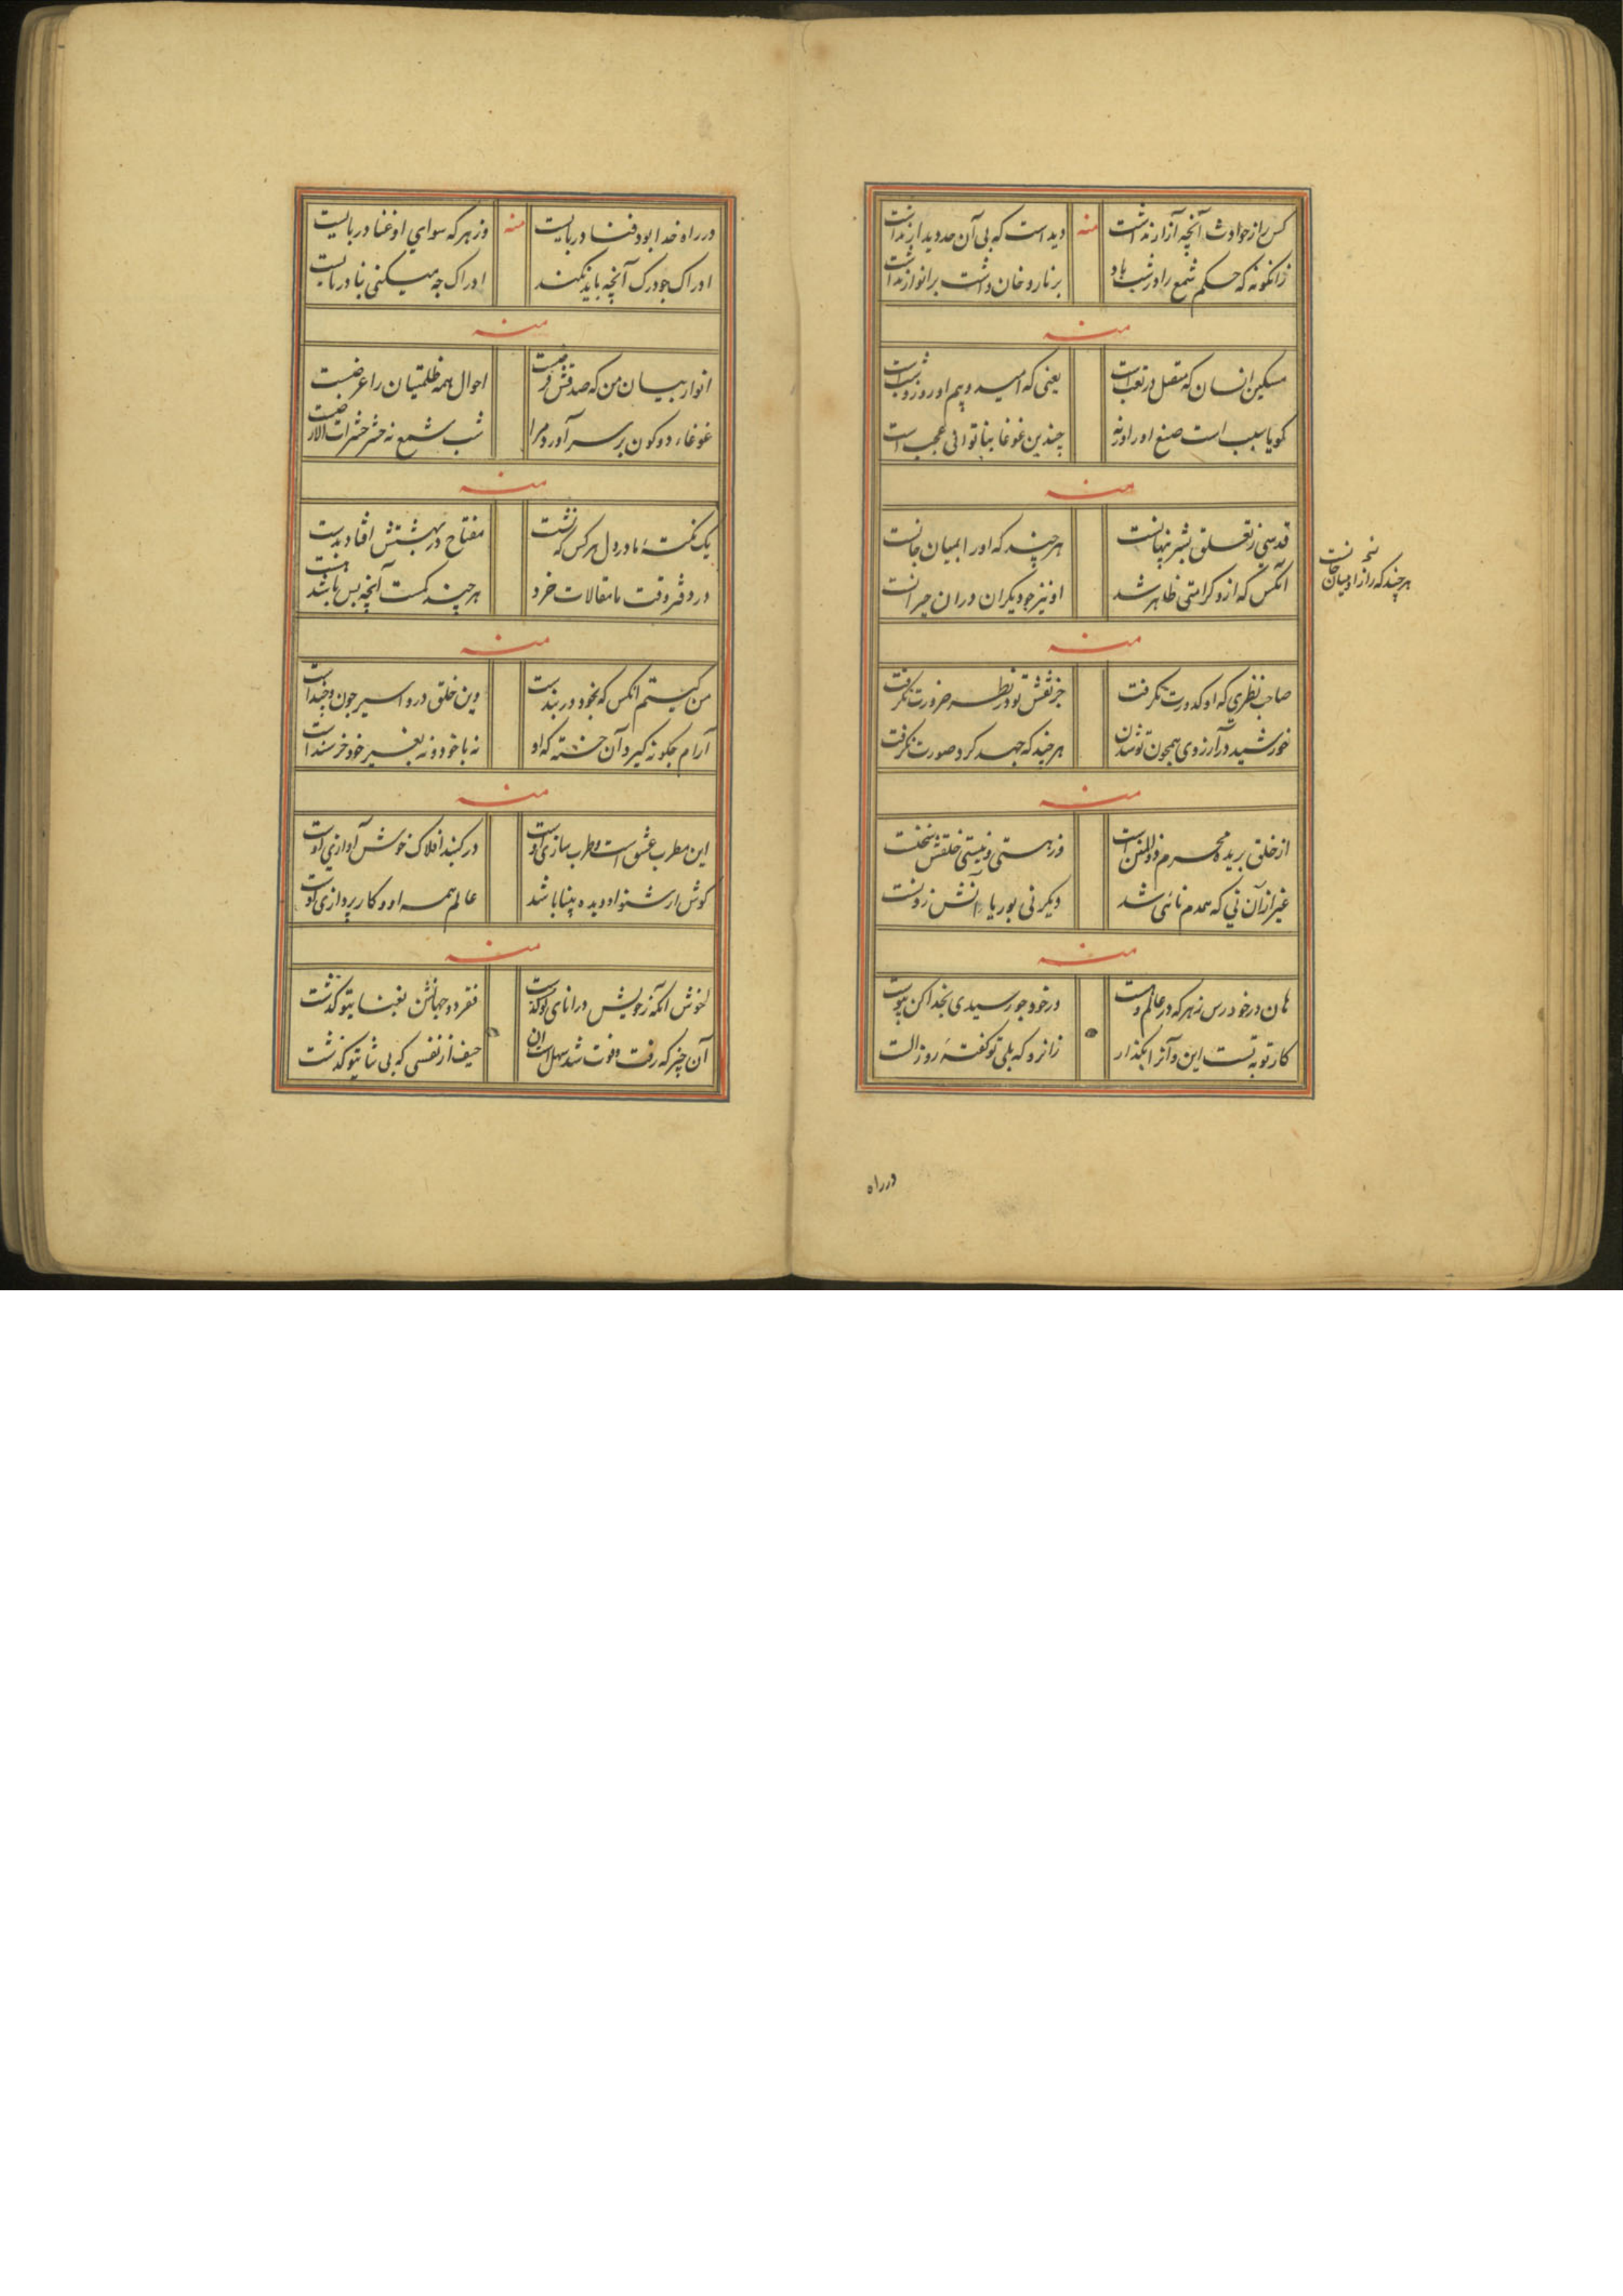 کس را ز حوادث آنچه آزار نداشت منه دیده است که بی آن حد دیدار نداشت
زانگونه که حکم شمع را در شب باد بر نار و خان داشت بر انوار نداشت
منه
مسکین انسان که متصل در تعب است یعنی که امید و بیم او روز و شب است
گویا سبب است صنع او را ورنه چندین غوغا بناتوانی عجب است
منه
قدسی ز تعلق بشر پنهانست هر چند که او را بمیان جانست
آنکس که ازو کرامتی ظاهر شد او نیز چو دیگران در ان حیرانست
نخـ
هر چند که راز او میان جانست
منه
صاحب نظری که او کدورت نگرفت جز نقش تو در نظر ضرورت نگرفت
خورشید در آرزوی همچون تو شدن هر چند که جهد کرد صورت نگرفت
منه
از خلق بریده محرم ذوالمنن است وز هستی و نیستی خلقش سخنست
غیر از آن نی که همدم نائی شد دیگر نی بوریا و آتش زدنست
منه
هان در خود رس ز هر که در عالم هست در خود چو رسیدی بخدا کن پیوست
کار تو به تست این و آنرا بگذار زانرو که بلی تو گفتهٔ روز الست
در راه
در راه خدا بود فنا در بایست منه وز هر که سوای او غنا در بایست
ادراک چو درک آنچه باید نکند ادراک چه میکنی بنا در بایست
منه
انوار بیان من که صدقش فرضست احوال همه ظلمتیان را عرضست
غوغاء دو کون بر سر آورد مرا شب شمع نه حشر حشرات الارضست
منه
یک نکتهٔ ما در دل هر کس که نشست مفتاح در بهشتش افتاد بدست
در دفتر وقت ما مقالات خرد هر چند کمست آنچه بس باشد هست
منه
من کیستم انکس که بخود در بند است وین خلق درو اسیر چون و چند است
آرام چگونه گیرد آن خسته که او نه با خود و نه بغیر خود خرسند است
منه
این مطرب عشق است و طرب سازی اوست در گنبد افلاک خوش آوازی اوست
گوش ار شنوا و دیده بینا باشد عالم همه او و کار پردازی اوست
منه
خوش انکه ز خویش در انای تو گذشت فقر دو جهانش بغنای تو گذشت
آن چیز که رفت و فوت شد سهل است آن حیف از نفسی که بی ثنای تو گذشت